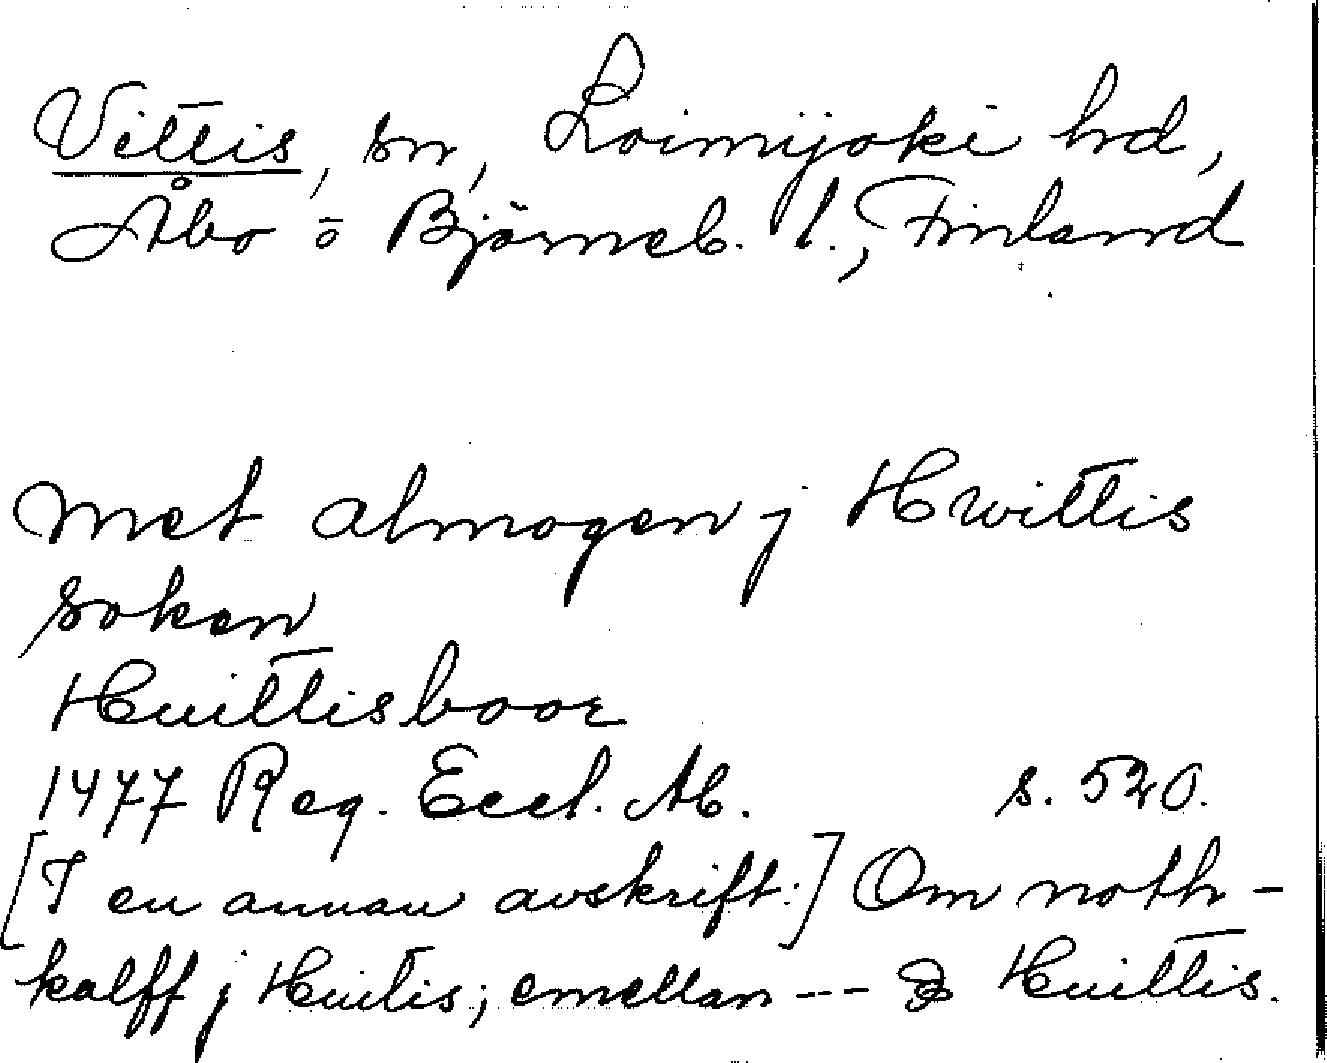 Vittis, sn, Loimijoki hd,
Åbo o Björneb. l., Finland
met almogen j Hwittis
soken
Huittisboor
1477 Reg. Eccl. Ab. s. 520.
[I en annan avskrift:] Om noth-
kalff j Huitis; emellan --- Huittis.